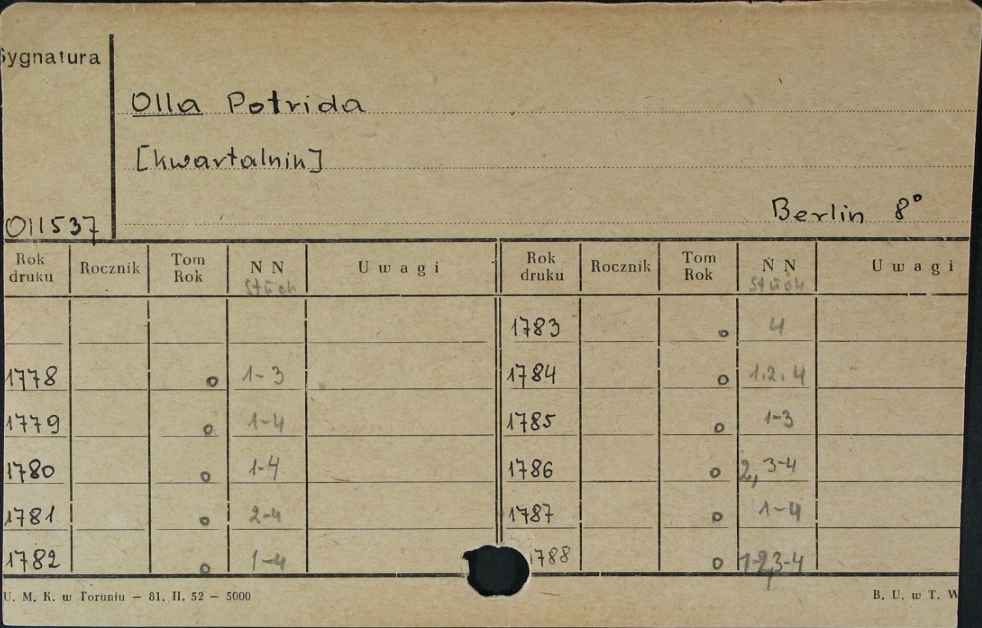 Sygnatura
Olla Potrida
[kwartalnik]
011537
Berlin 8°
Rok druku Rocznik Tom Rok N N Uwagi Rok druku Rocznik Tom Rok N N Uwagi
Stück Stück
1783 o 4
1778 o 1-3 1784 o 1.2.4
1779 o 1-4 1785 o 1-3
1780 o 1-4 1786 o 2, 3-4
1781 o 2-4 1787 o 1-4
1782 o 1-4 1788 o 1-2,3-4
U. M. K. w Toruniu — 81. II. 52 — 5000 B. U. w T. W